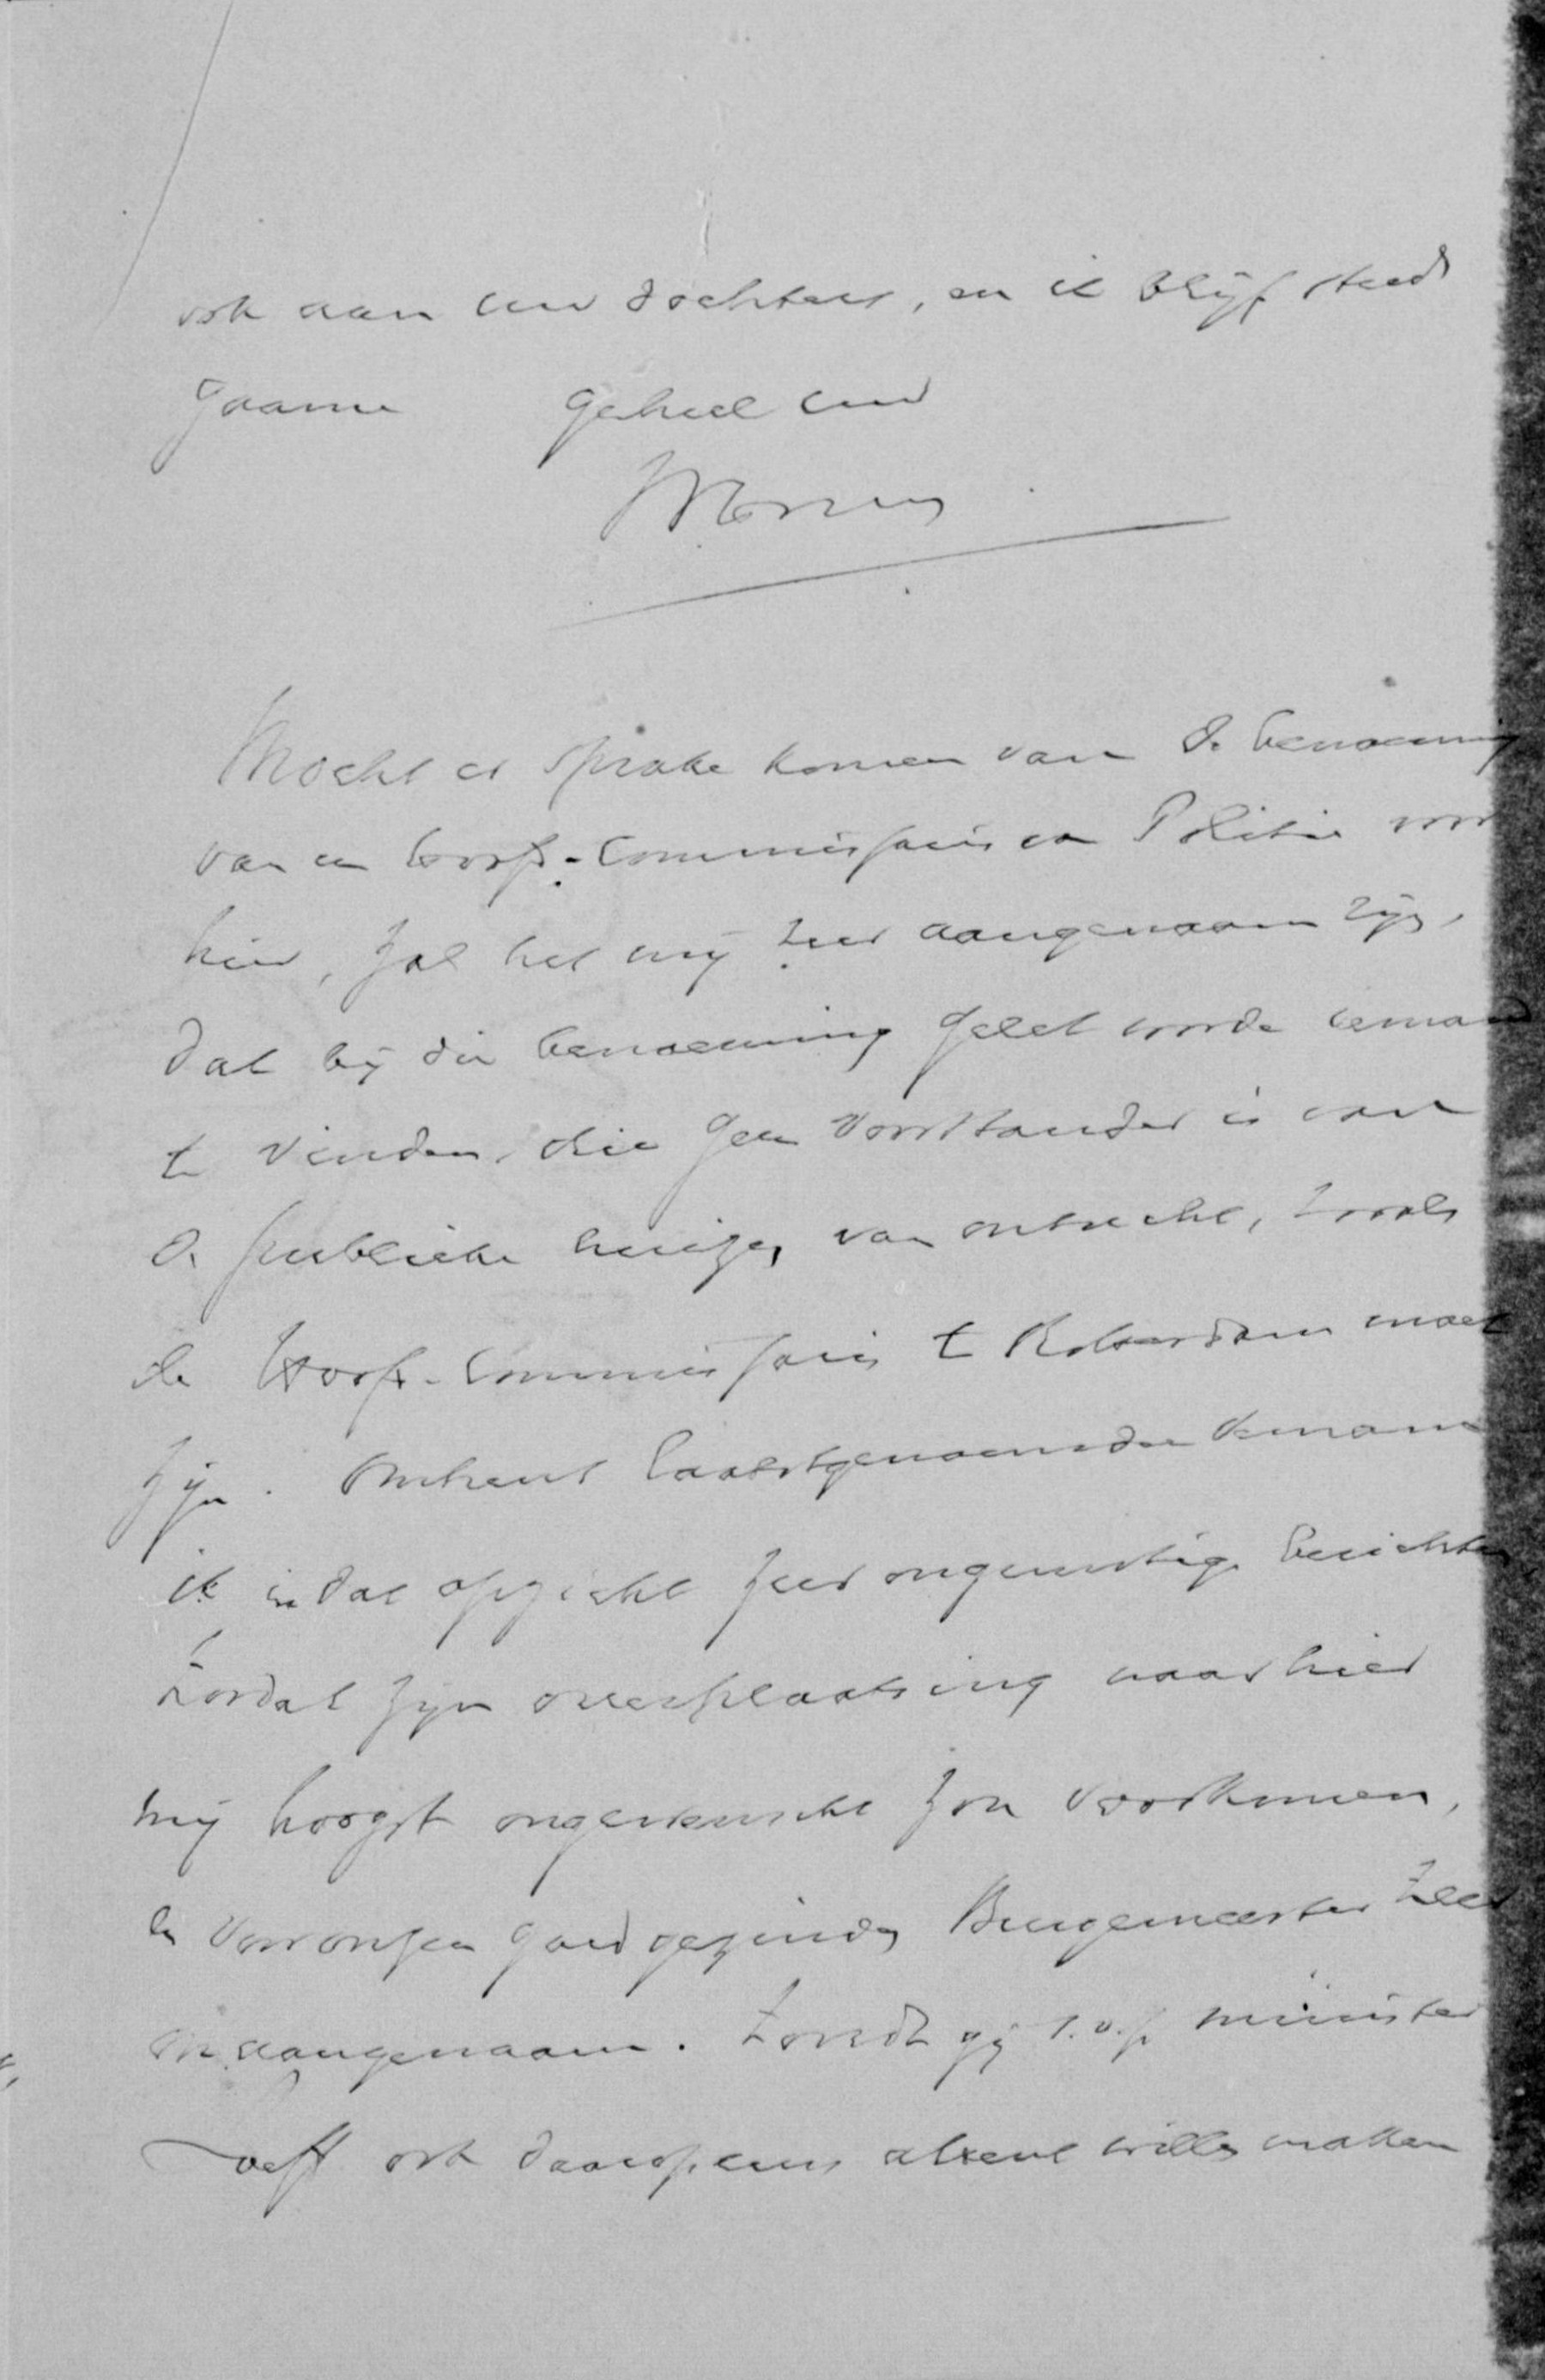 ook aan uw dochters, en ik blijf steeds
gaarne geheel uw
Mocht er sprake komen van de benoeming
van een Hoofd-Commissaris van Politie voor
hier, zal het mij zeer aangenaam zijn,
dat bij die benoeming gelet worde iemand
te vinden, die geen voorstander is van
de publieke huizen van ontucht, zooals
de Hoofd-Commissaris te Rotterdam moet
zijn. Omtrent laatstgenoemden vernam
ik in dat opzicht zeer ongunstige berichten
zoodat zijn overplaatsing naar hier
mij hoogst ongewenscht zou voorkomen,
en voor onzen goedgezinden Burgemeester zeer
onaangenaam. Zoudt gij s.v.p. minister
ook daarop eens attent willen maken